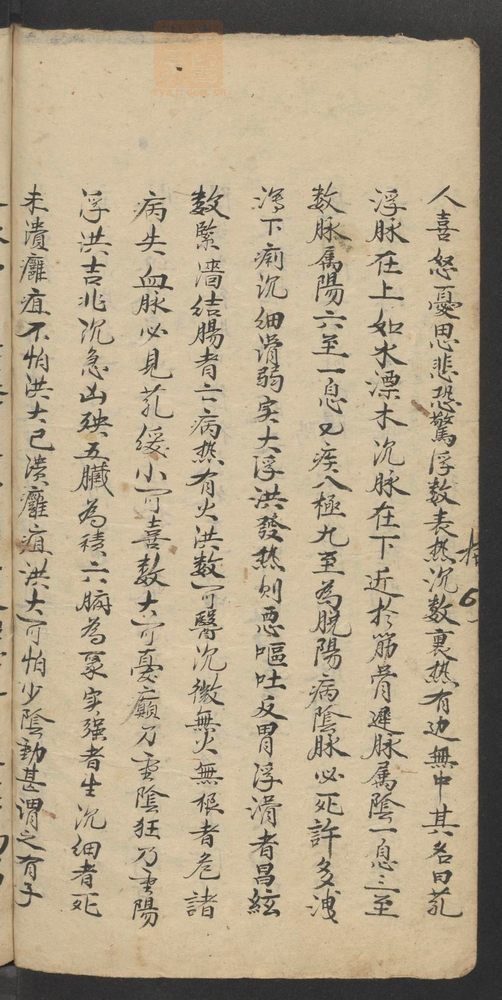 人喜怒憂思悲恐驚浮数表热沉数裏热有边無中其名曰芤
浮脉在上如水漂木沉脉在下近於筋骨遲脉属陰一息三至
数脉属陽六至一息又疾八極九至為脱陽病陰脉必死許多洩
瀉下痢沉細滑弱实大浮洪發热则恶嘔吐反胃浮滑者昌絃
数緊濇结腸者亡病热有火洪数可醫沉微無火無根者危諸
病失血脉必見芤缓小可喜数大可憂癲乃重陰狂乃重陽
浮洪吉兆沉急凶殃五臟為積六腑為聚实强者生沉細者死
未潰癰疽不怕洪大已潰癰疽洪大可怕少陰動甚谓之有子